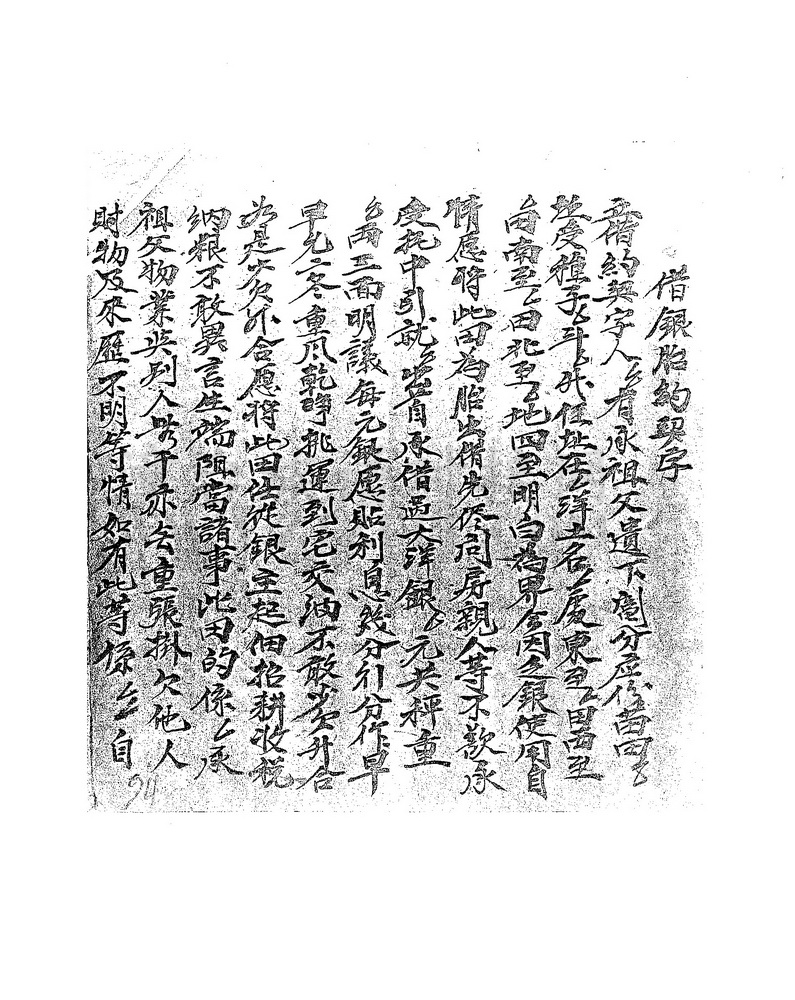 借銀胎約契字
立借約契字人厶厶有承祖父遺下鬮分應份苗田厶
坵受種子厶斗厶升住址在厶洋土名厶處東至厶田西至
厶南至厶田北至厶地四至明白為界今因乏銀使用自
情愿將此田為胎出借先俢問房親人等不欲承
受托中引就厶出首承借過大洋銀厶元共秤重
厶兩三面明議每元銀愿貼利息幾分行分作早
早允二冬重風乾淨挑運到宅交納不敢少欠升合
如是少欠升合愿將此田仕從銀主起佃招耕收稅
納粮不敢異言生端阻當諸事此田的係厶承
祖父物業與別人無干亦去重張掛欠他人
財物及來歷不明等情如有此等係厶自
90